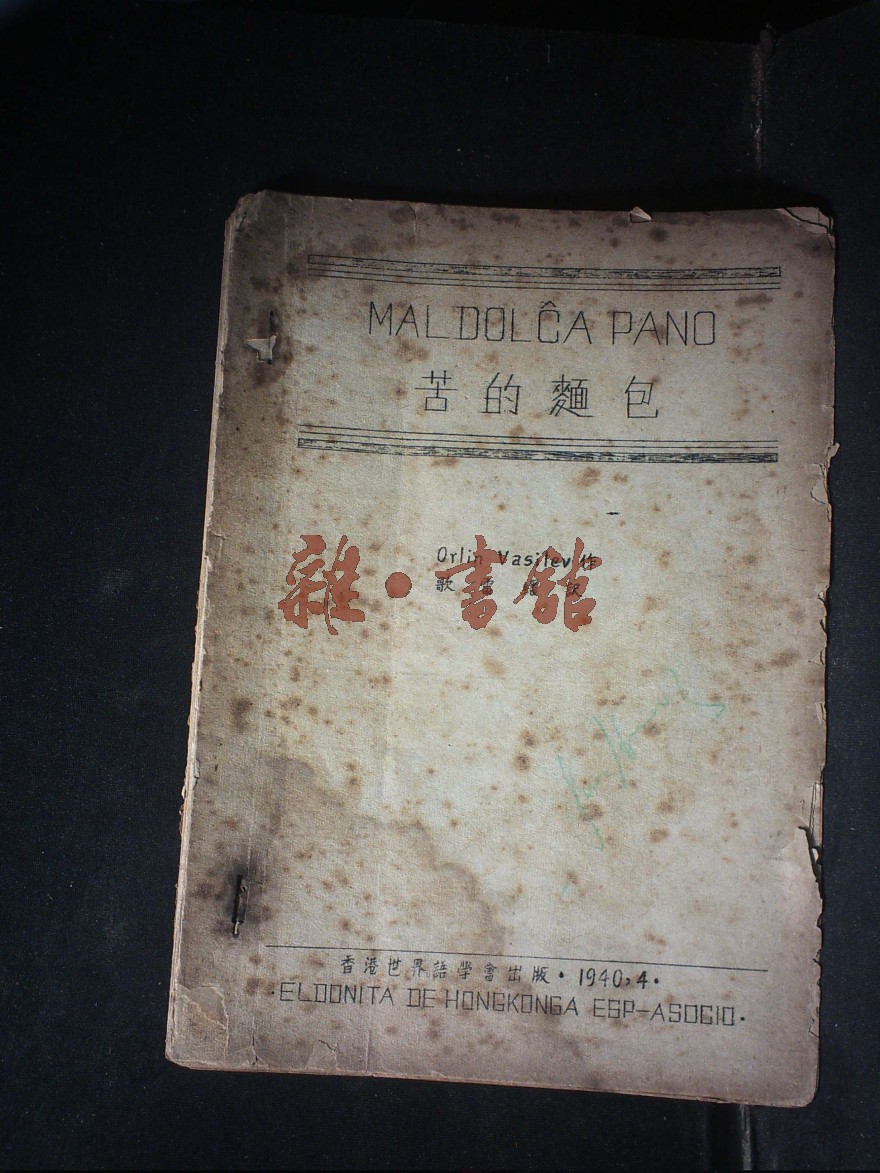 MALDOLĈA PANO
苦的麵包
Orlin Vasilev 作
歌
雜·書館
香港世界語學會出版·1940,4·
·ELDONITA DE HONGKONGA ESP-ASOCIO·